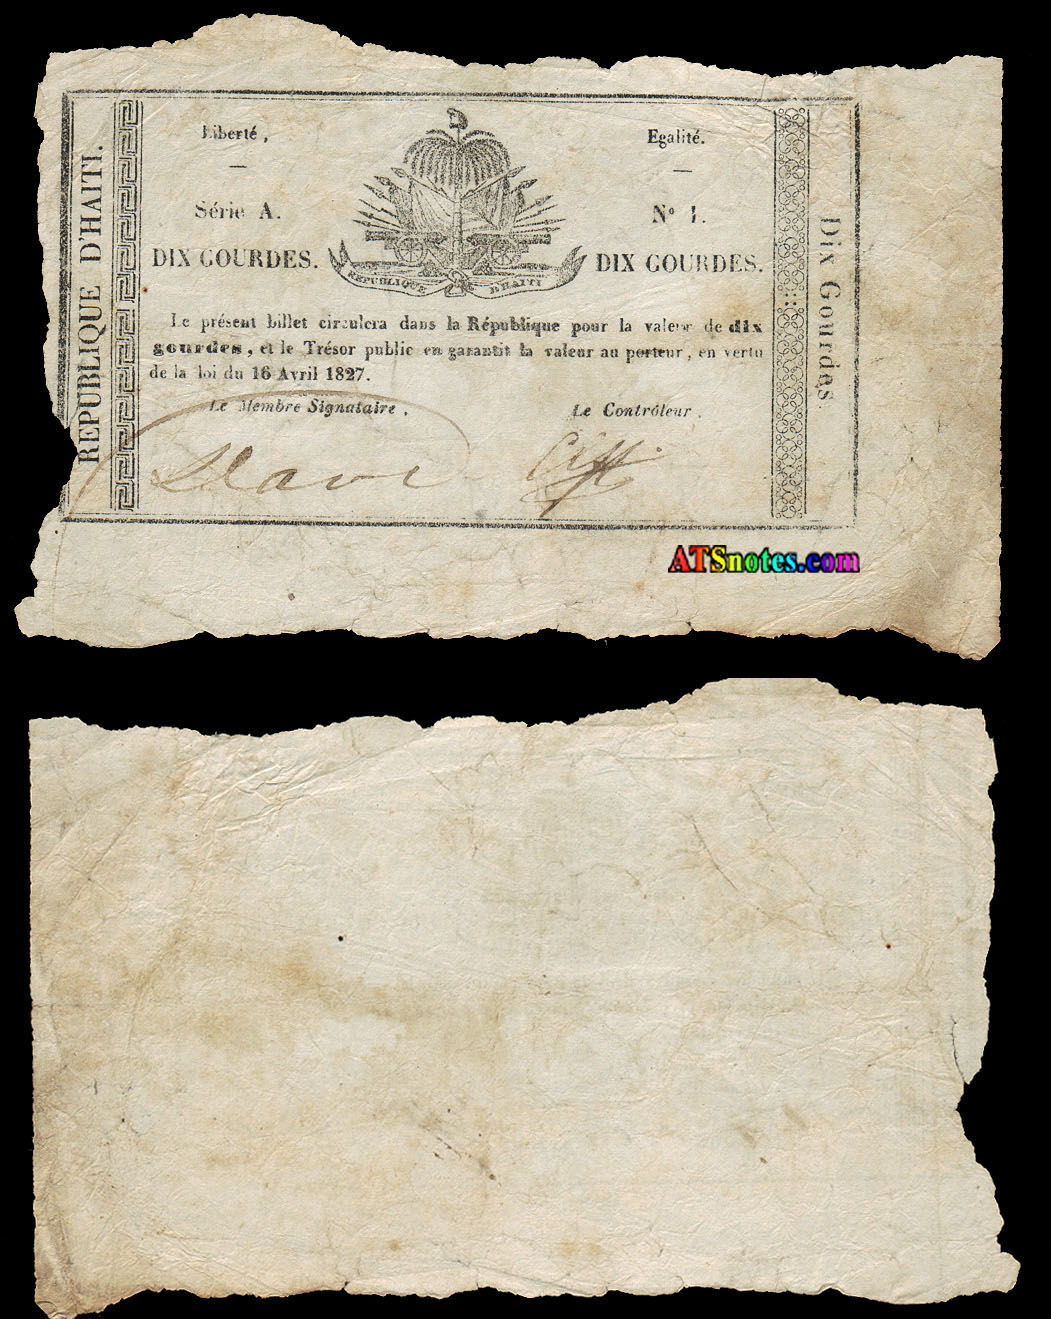 Liberté,
Egalité.
Série A.
N° 1.
DIX GOURDES.
DIX GOURDES.
REPUBLIQUE D'HAITI
REPUBLIQUE D'HAITI.
Dix Gourdes.
Le présent billet circulera dans la République pour la valeur de dix
gourdes, et le Trésor public en garantit la valeur au porteur, en vertu
de la loi du 16 Avril 1827.
Le Membre Signataire,
Le Contrôleur.
ATSnotes.com